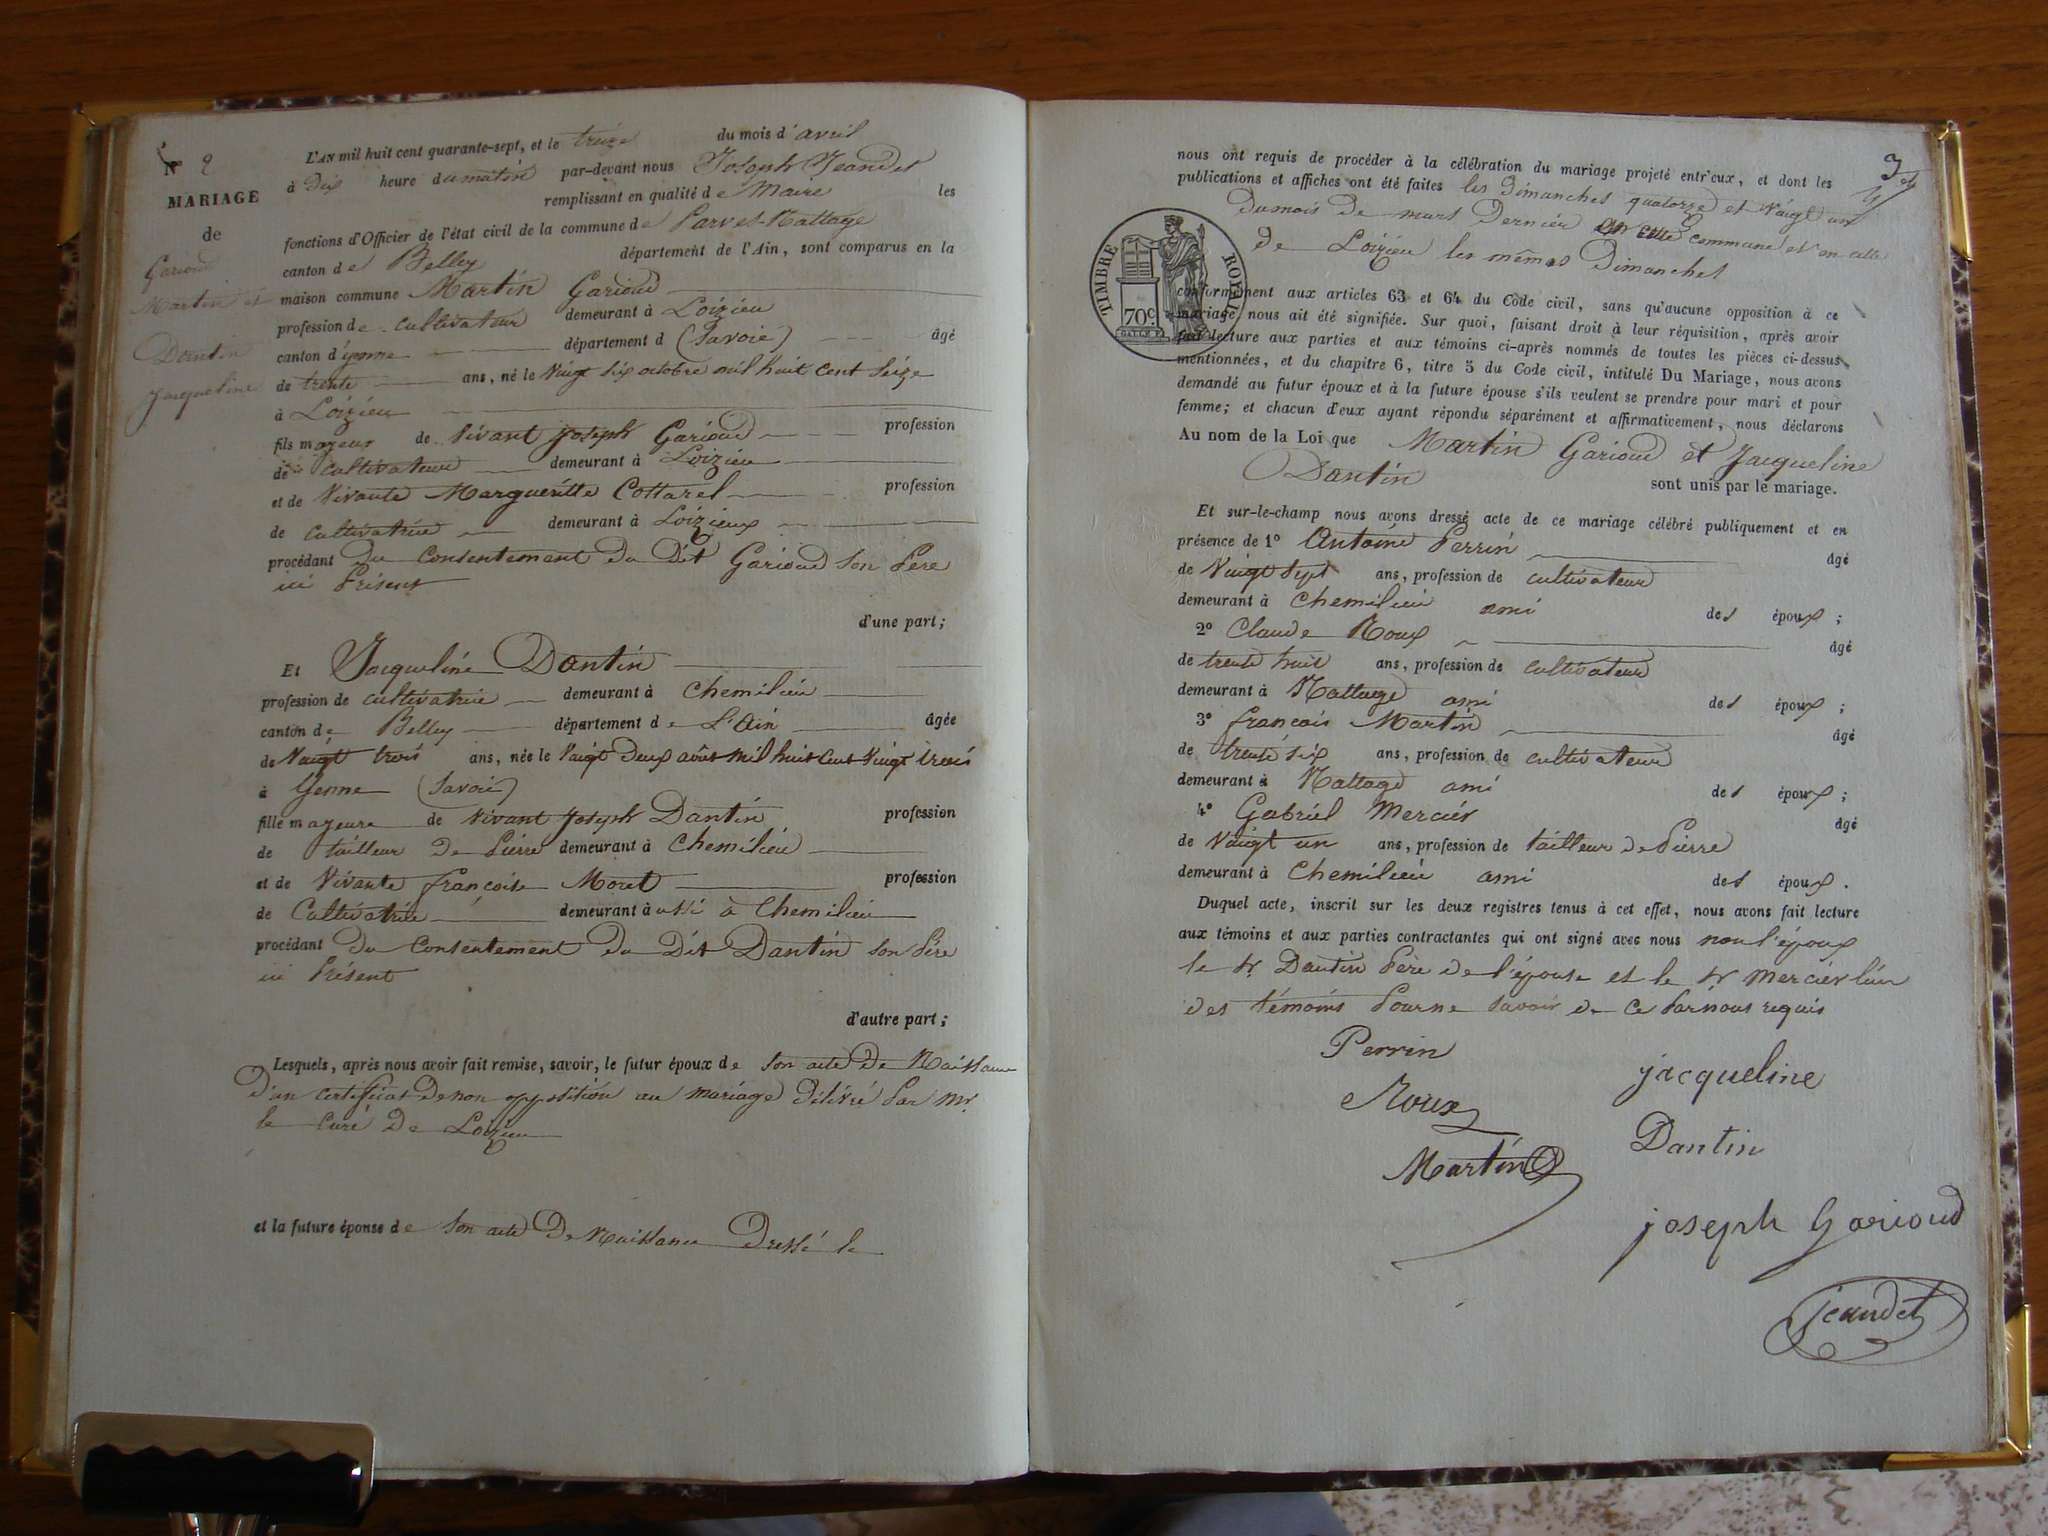 N° 2
MARIAGE
de
Garioud
Martin et
Dantin
Jacqueline
L'AN mil huit cent quarante-sept, et le treize du mois d'avril
à Dix heure du matin par-devant nous Joseph Jeandet
remplissant en qualité de Maire les
fonctions d'Officier de l'état civil de la commune de Parves-Nattage
canton de Belley département de l'Ain, sont comparus en la
maison commune Martin Garioud
profession de cultivateur demeurant à Loizieu
canton d'yenne département d (Savoie) âgé
de trente ans, né le Vingt Six octobre mil huit Cent Seize
à Loizieu
fils majeur de Vivant Joseph Garioud profession
de cultivateur demeurant à Loizieu
et de Vivante Margueritte Cottarel profession
de cultivatrice demeurant à Loizieux
procédant Du Consentement Du Dit Garioud Son Père
ici Présent
d'une part;
Et Jacqueline Dantin
profession de cultivatrice demeurant à Chemilieu
canton de Belley département de L'Ain âgée
de Vaigt trois ans, née le Vaigt Deux août Mil huit Cent Vingt trois
à Yenne (Savoie)
fille majeure de Vivant Joseph Dantin profession
de tailleur De Pierre demeurant à Chemilieu
et de Vivante françoise Moret profession
de Cultivatrice demeurant à ussi à Chemilieu
procédant Du Consentement Du Dit Dantin Son Père
ici Présent
d'autre part;
Lesquels, après nous avoir fait remise, savoir, le futur époux de Son acte De Naissance
D'un certificat De non opposition au mariage Délivré Par Mr
le Curé De Loizieu
et la future épouse de Son acte De Naissance Dressé le
3
nous ont requis de procéder à la célébration du mariage projeté entr'eux, et dont les
publications et affiches ont été faites les Dimanches quatorze et Vaigt un
Du mois De mars Dernier en cette Commune et en celle
De Loizieu les mêmes Dimanches
TIMBRE ROYAL
70c
conformément aux articles 63 et 64 du Code civil, sans qu'aucune opposition à ce
mariage nous ait été signifiée. Sur quoi, faisant droit à leur réquisition, après avoir
fait lecture aux parties et aux témoins ci-après nommés de toutes les pièces ci-dessus
mentionnées, et du chapitre 6, titre 5 du Code civil, intitulé Du Mariage, nous avons
demandé au futur époux et à la future épouse s'ils veulent se prendre pour mari et pour
femme; et chacun d'eux ayant répondu séparément et affirmativement, nous déclarons
Au nom de la Loi que Martin Garioud et Jacqueline
Dantin sont unis par le mariage.
Et sur-le-champ nous avons dressé acte de ce mariage célébré publiquement et en
présence de 1° Antoine Perrin âgé
de Vaigt Sept ans, profession de cultivateur
demeurant à Chemilieu ami des époux;
2° Claude Roux âgé
de trente huit ans, profession de cultivateur
demeurant à Nattage ami des époux;
3° françois Martin âgé
de trente Six ans, profession de cultivateur
demeurant à Nattage ami des époux;
4° Gabriel Mercier âgé
de Vaigt un ans, profession de tailleur De Pierre
demeurant à Chemilieu ami des époux.
Duquel acte, inscrit sur les deux registres tenus à cet effet, nous avons fait lecture
aux témoins et aux parties contractantes qui ont signé avec nous non l'époux
le Sr Dantin Père De l'épouse et le Sr Mercier l'un
Des témoins Pour ne Savoir De Ce Par nous requis
Perrin
jacqueline
Roux
Dantin
Martin
joseph Garioud
jeandet